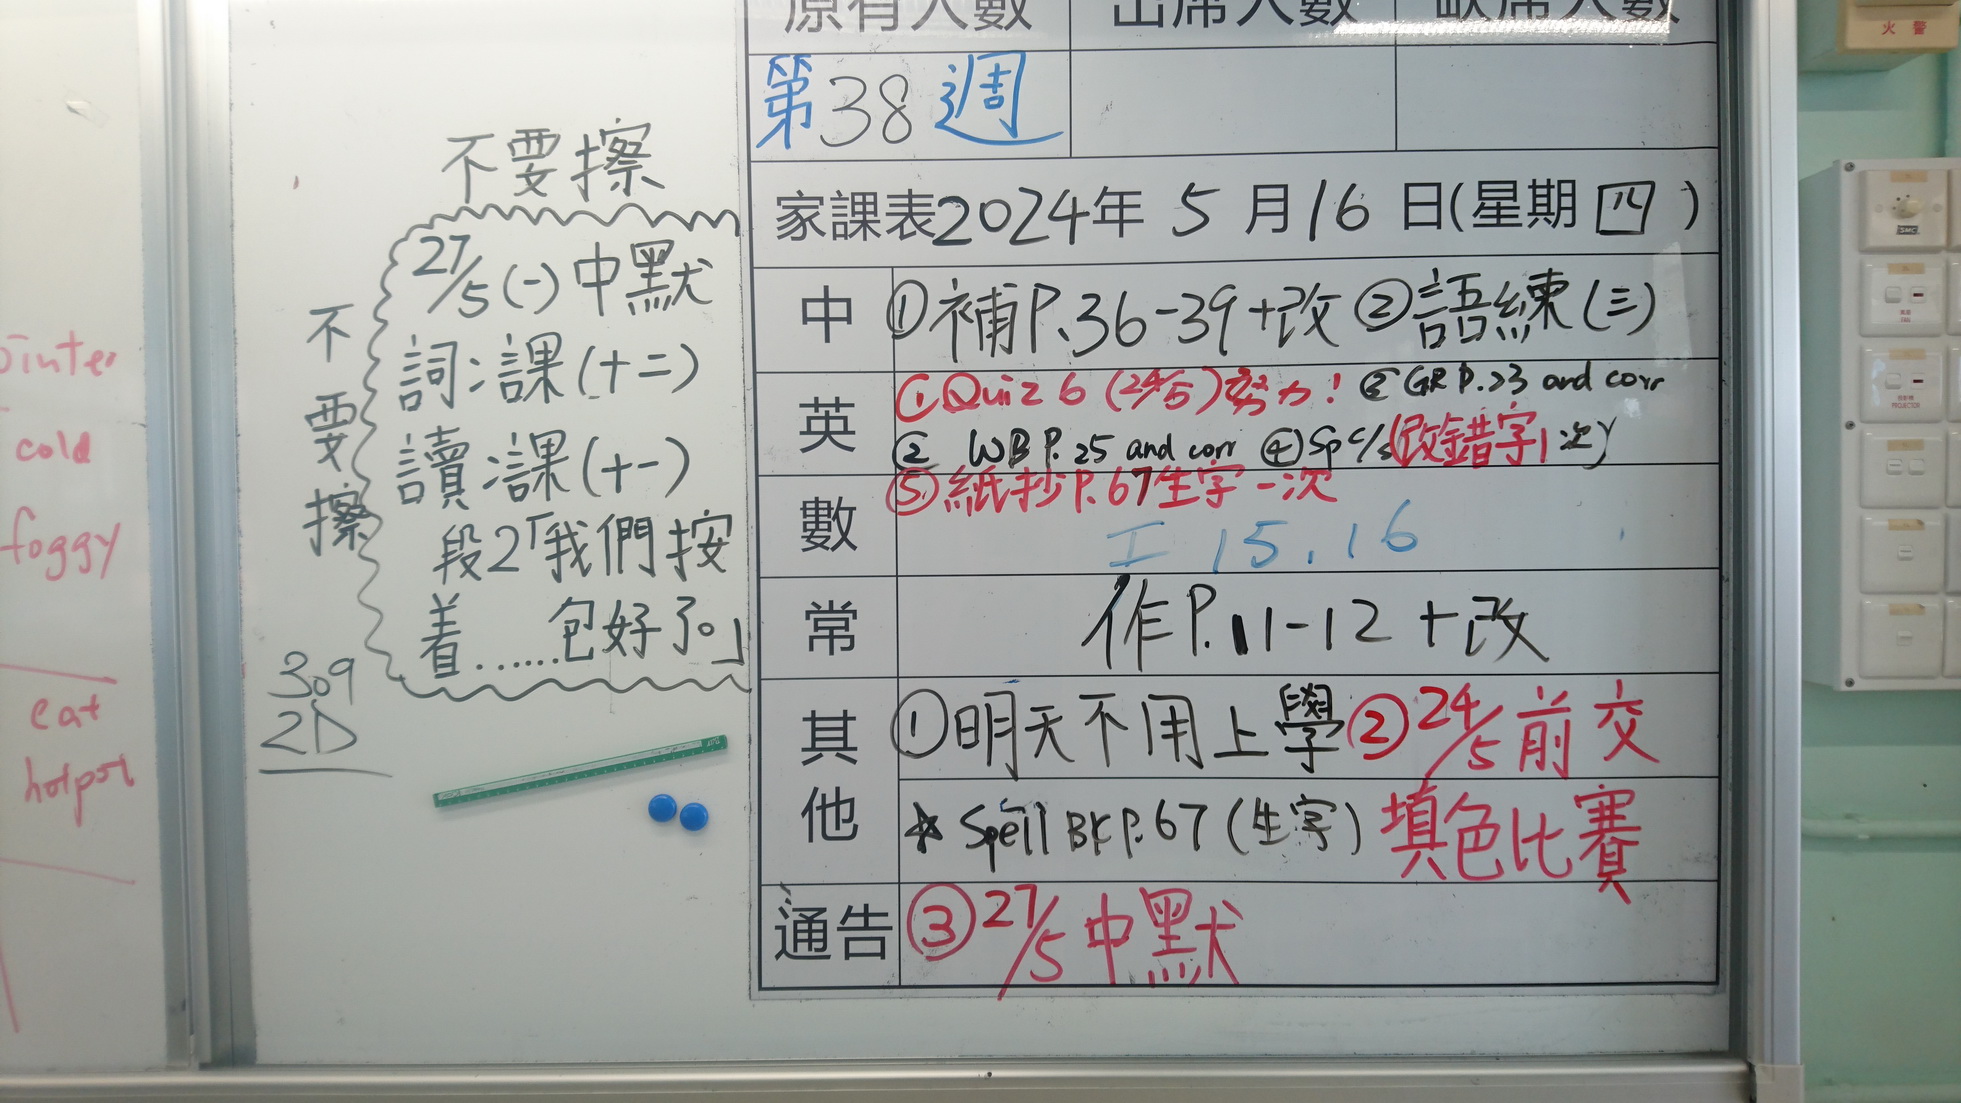 cold
foggy
eat
不要擦
不要擦
27/5(一)中默
詞:課(十二)
讀:課(十一)
段2「我們按
着……包好了。」
309
2D
原有人數 出席人數 缺席人數
第38週
家課表2024年5月16日(星期四)
中 ①補P.36-39+改 ②語練(三)
英 ①Quiz 6 (24/5)努力! ② GR P.23 and corr
② WB P.25 and corr ④Sp c/s(改錯字1次)
⑤紙抄P.67生字一次
數 I 15.16
常 作P.11-12+改
其他 ①明天不用上學②24/5前交
★ Spell BK P.67(生字) 填色比賽
通告 ③27/5中默
火警
SMC
PROJECTOR